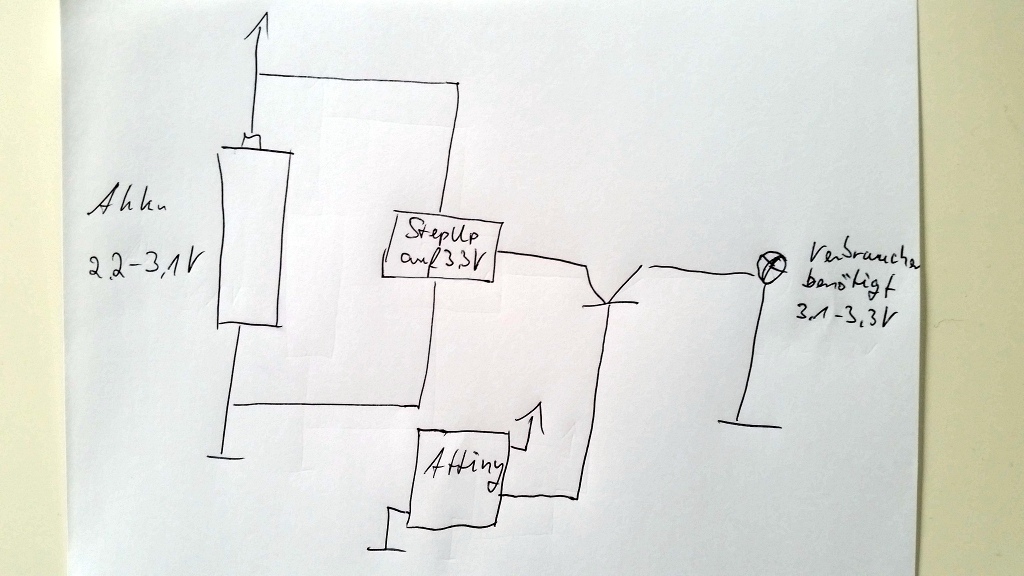 Akku
2,2-3,1V
StepUp
auf 3,3V
Verbraucher
benötigt
3,1-3,3V
Attiny